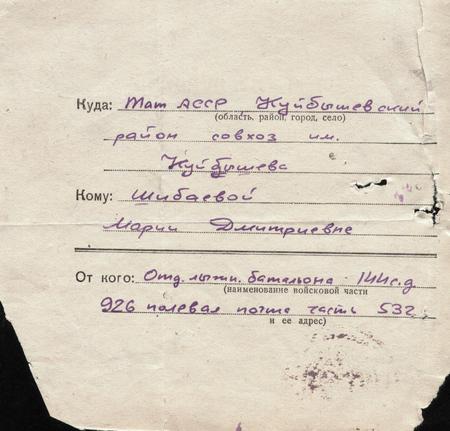 Куда: Тат АССР Куйбышевский
(область, район, город, село)
район совхоз им.
Куйбышева
Кому: Шибаевой
Марии Дмитриевне
От кого: Отд. лыжн. батальона 144 с.д
(наименование войсковой части
926 полевая почта часть 532
и ее адрес)